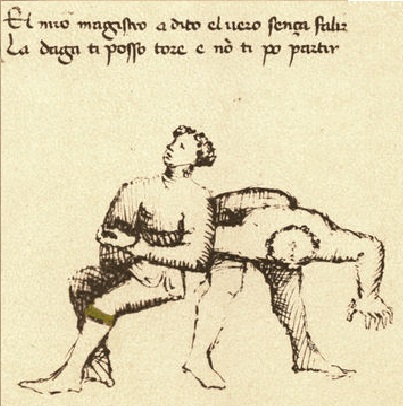 El mio magistro a dito el uero sença falir
La daga ti posso tore e nõ ti po partir